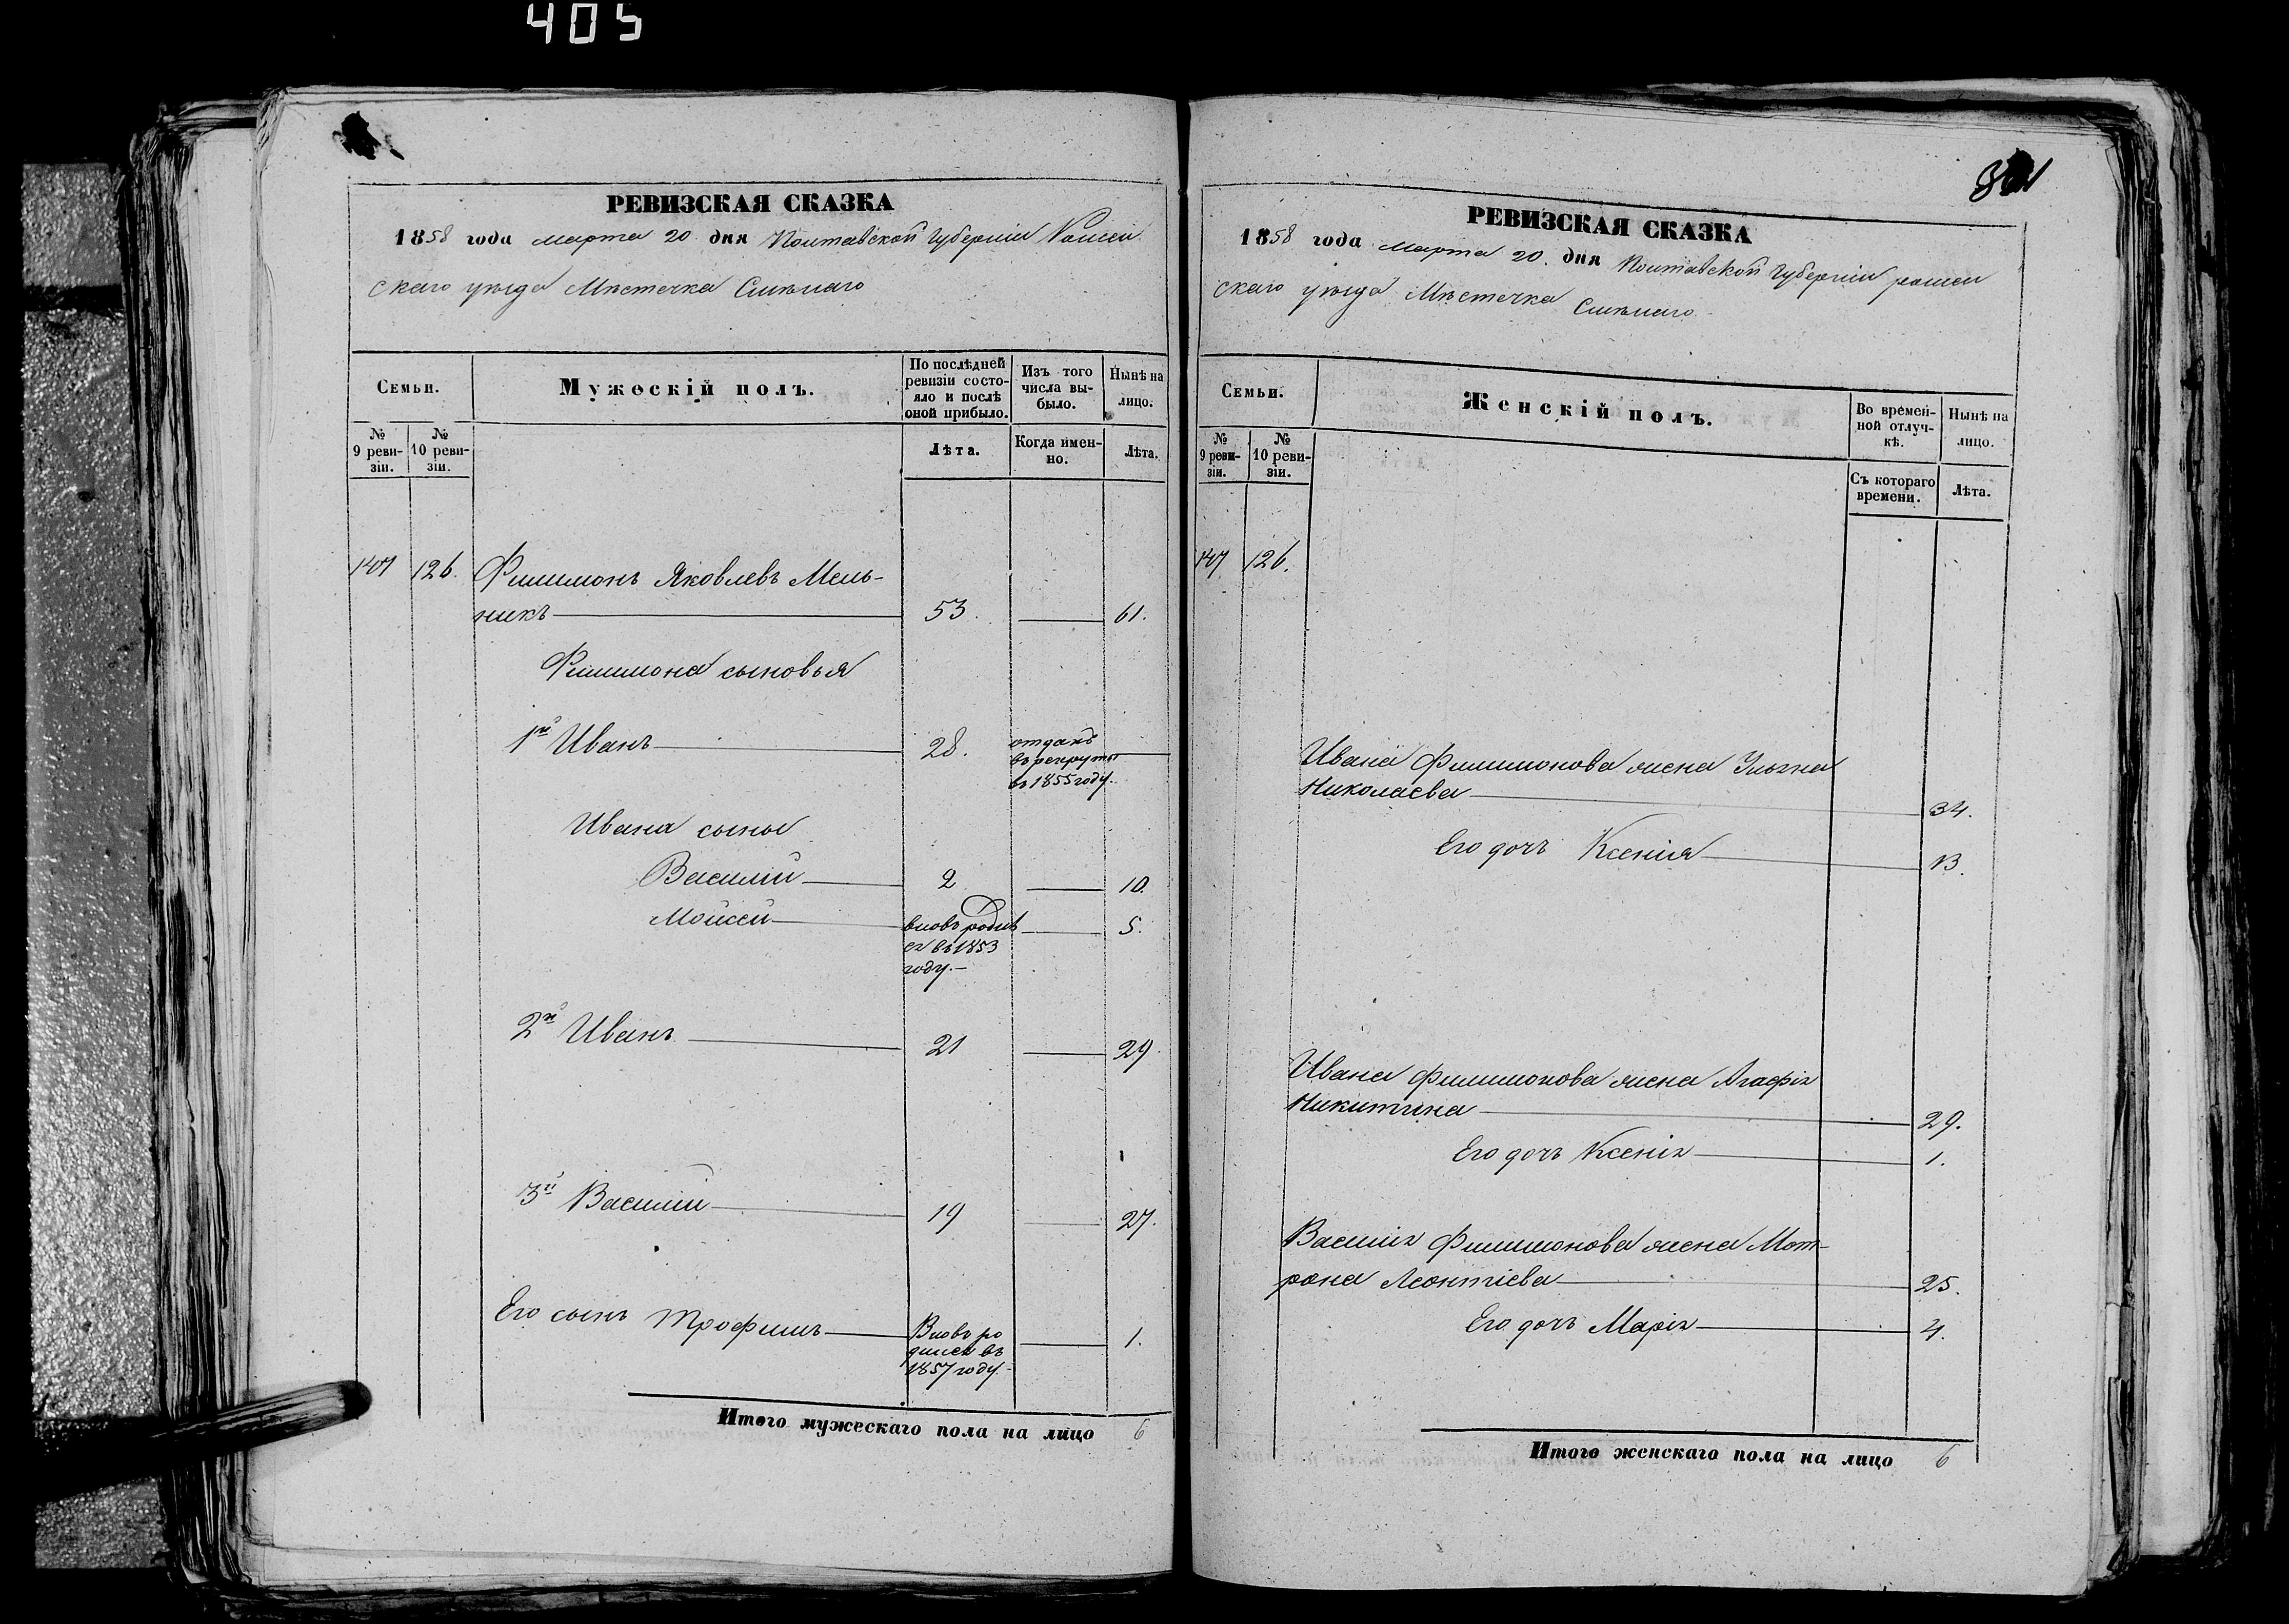 405
РЕВИЗСКАЯ СКАЗКА
1858 года марта 20 дня Полтавской Губерніи Ромен
скаго уѣзда Мѣстечка Смѣлаго
Семьи.
Мужескій полъ.
По послѣдней
ревизіи состо-
яло и послѣ
оной прибыло.
Изъ того
числа вы-
было.
Нынѣ на
лицо.
№
9 реви-
зіи.
№
10 реви-
зіи.
Лѣта.
Когда имен-
но.
Лѣта.
147 126. Филимонъ Яковлевъ Мель-
никъ 53. 61.
Филимона сыновья
1й Иванъ 28. отданъ
въ рекруты
въ 1855 году.
Ивана сыны
Василій 2 10.
Мойсей вновь родил 5.
ся въ 1853
году.-
2й Иванъ 21 29
3й Василій 19 27.
Его сынъ Трофимъ Вновь ро 1.
дился въ
1857 году.-
Итого мужескаго пола на лицо 6
РЕВИЗСКАЯ СКАЗКА
1858 года марта 20. дня Полтавской Губерніи ромен
скаго уѣзда Мѣстечка Смѣлаго
Семьи.
Женскій полъ.
Во времен-
ной отлуч-
кѣ.
Нынѣ на
лицо.
№
9 реви-
зіи.
№
10 реви-
зіи.
Съ котораго
времени.
Лѣта.
147 126.
Ивана Филимонова жена Ульяна
Николаева 34.
Его дочь Ксенія 13.
Ивана Филимонова жена Агафія
Никитина 29.
Его дочь Ксенія 1.
Василія Филимонова жена Мот-
рона Леонтіева 25.
Его дочь Марія 4.
Итого женскаго пола на лицо 6